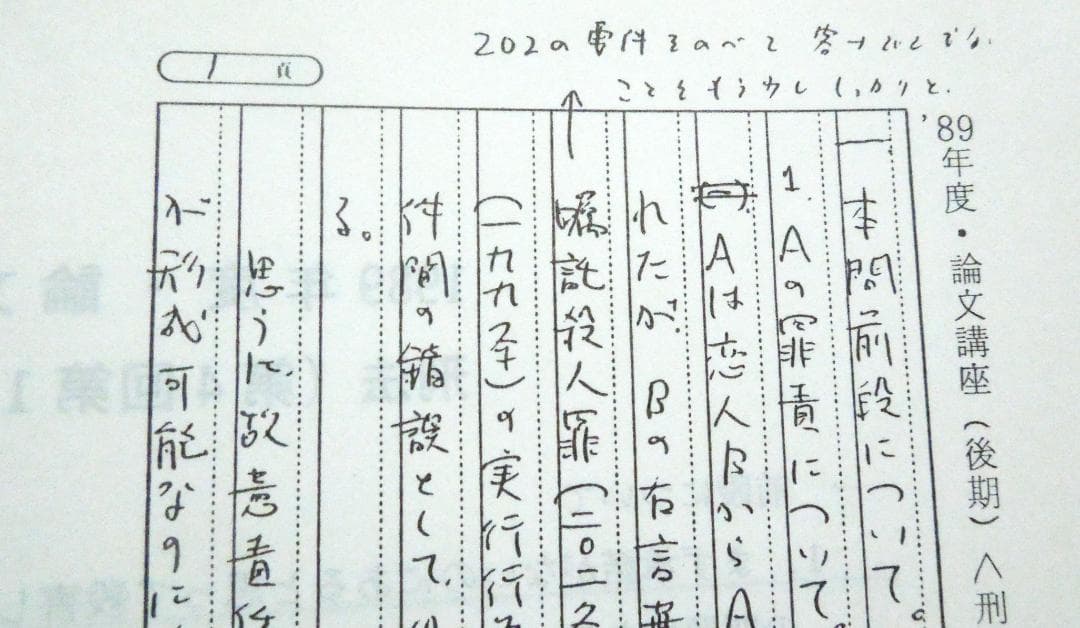 '89年度・論文講座(後期)<刑
1頁
202の要件をのべて
ことをもう少ししっかりと、
一 本問前段について。
1. Aの罪責について。
(一) Aは恋人BからA
れたが、Bの右言葉
嘱託殺人罪(二〇二
(一九九条)の実行行
件間の錯誤として、
る。
思うに、故意責任
が形成可能なのに